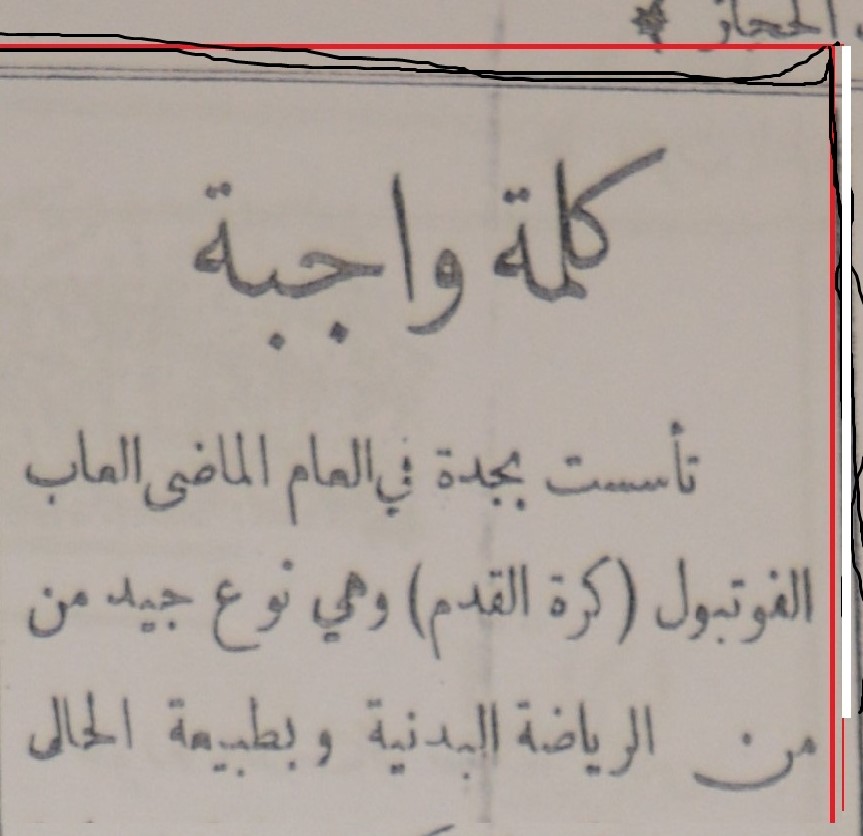 الحجاز *
كلمة واجبة
تأسست بجدة في العام الماضى العاب
الفوتبول (كرة القدم) وهي نوع جيد من
من الرياضة البدنية وبطبيعة الحال